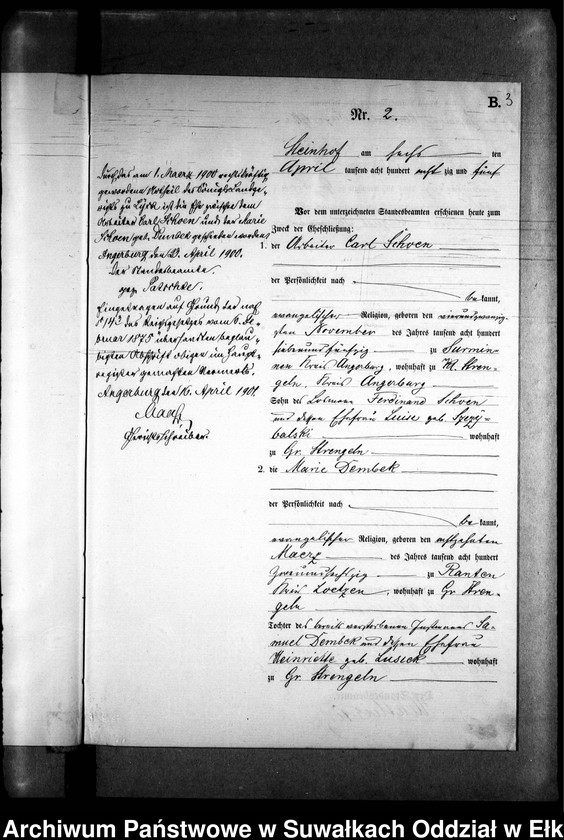 B. 3
Nr. 2.
Steinhof am sechs ten
April tausend acht hundert acht zig und fünf
Vor dem unterzeichneten Standesbeamten erschienen heute zum
Zweck der Eheschließung:
1. der Arbeiter Carl Schoen
der Persönlichkeit nach
be kannt,
evangelischer Religion, geboren den vierundzwanzig-
sten November des Jahres tausend acht hundert
siebenundfünfzig zu Surmin-
nen Kreis Angerburg, wohnhaft zu Kl. Stren-
geln, Kreis Angerburg
Sohn des Losmann Ferdinand Schoen
und dessen Ehefrau Luise geb. 
balski wohnhaft
zu Gr. Strengeln
2. die Marie Dembek
der Persönlichkeit nach
be kannt,
evangelischer Religion, geboren den achtzehnten
Maerz des Jahres tausend acht hundert
zweiundsechszig zu Ranten
Kreis Loetzen, wohnhaft zu Gr. Stren-
geln
Tochter des bereits verstorbenen Instmanns Sa-
muel Dembek und dessen Ehefrau
Heinriette geb. Luseck wohnhaft
zu Gr. Strengeln
Durch das am 1. Maerz 1900 rechtskräftig
gewordene Urtheil des Königl. Landge-
richts zu Lyck ist die Ehe zwischen dem
Arbeiter Carl Schoen und der Marie
Schoen geb. Dembek geschieden worden.
Angerburg den 2. April 1900.
Der Standesbeamte.
gez. Patschke.
Eingetragen auf Grund des nach
§ 14 des Reichsgesetzes vom 6. Fe-
bruar 1875 übersandten beglau-
bigten Abschrift obigen im Haupt-
register gemachten Vermerks.
Angerburg, den 16. April 1901.
Gerichtsschreiber.
Archiwum Państwowe w Suwałkach Oddział w Ełk